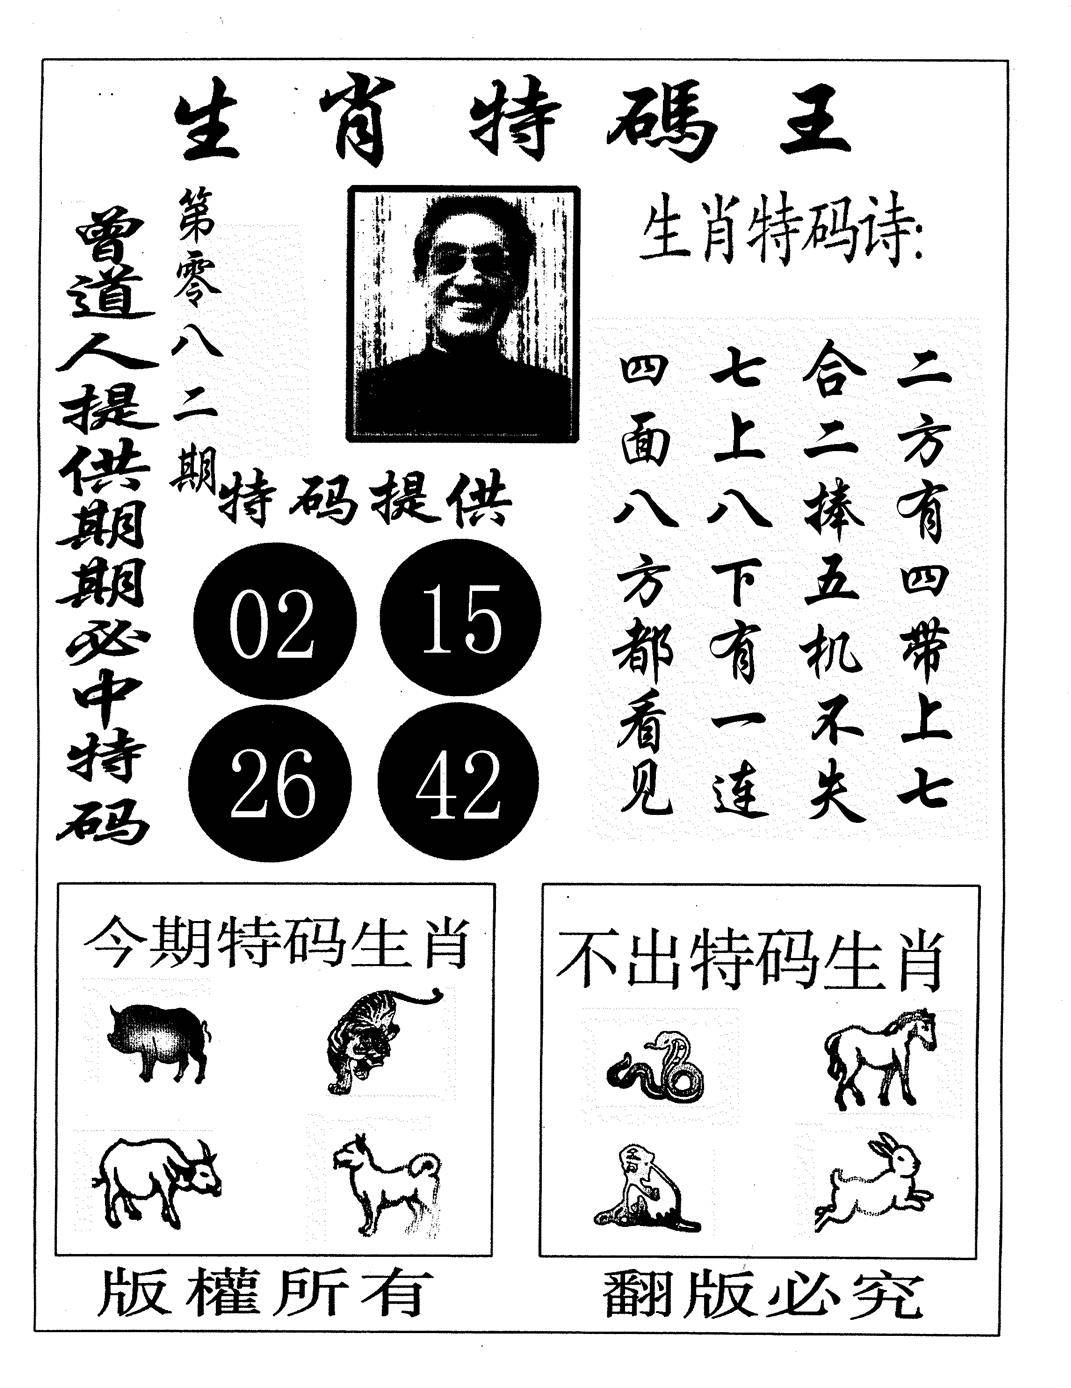 生肖特碼王
曾道人提供期期必中特码
第零八二期
生肖特码诗:
二方有四带上七
合二捧五机不失
七上八下有一连
四面八方都看见
特码提供
02 15
26 42
今期特码生肖
不出特码生肖
版權所有
翻版必究